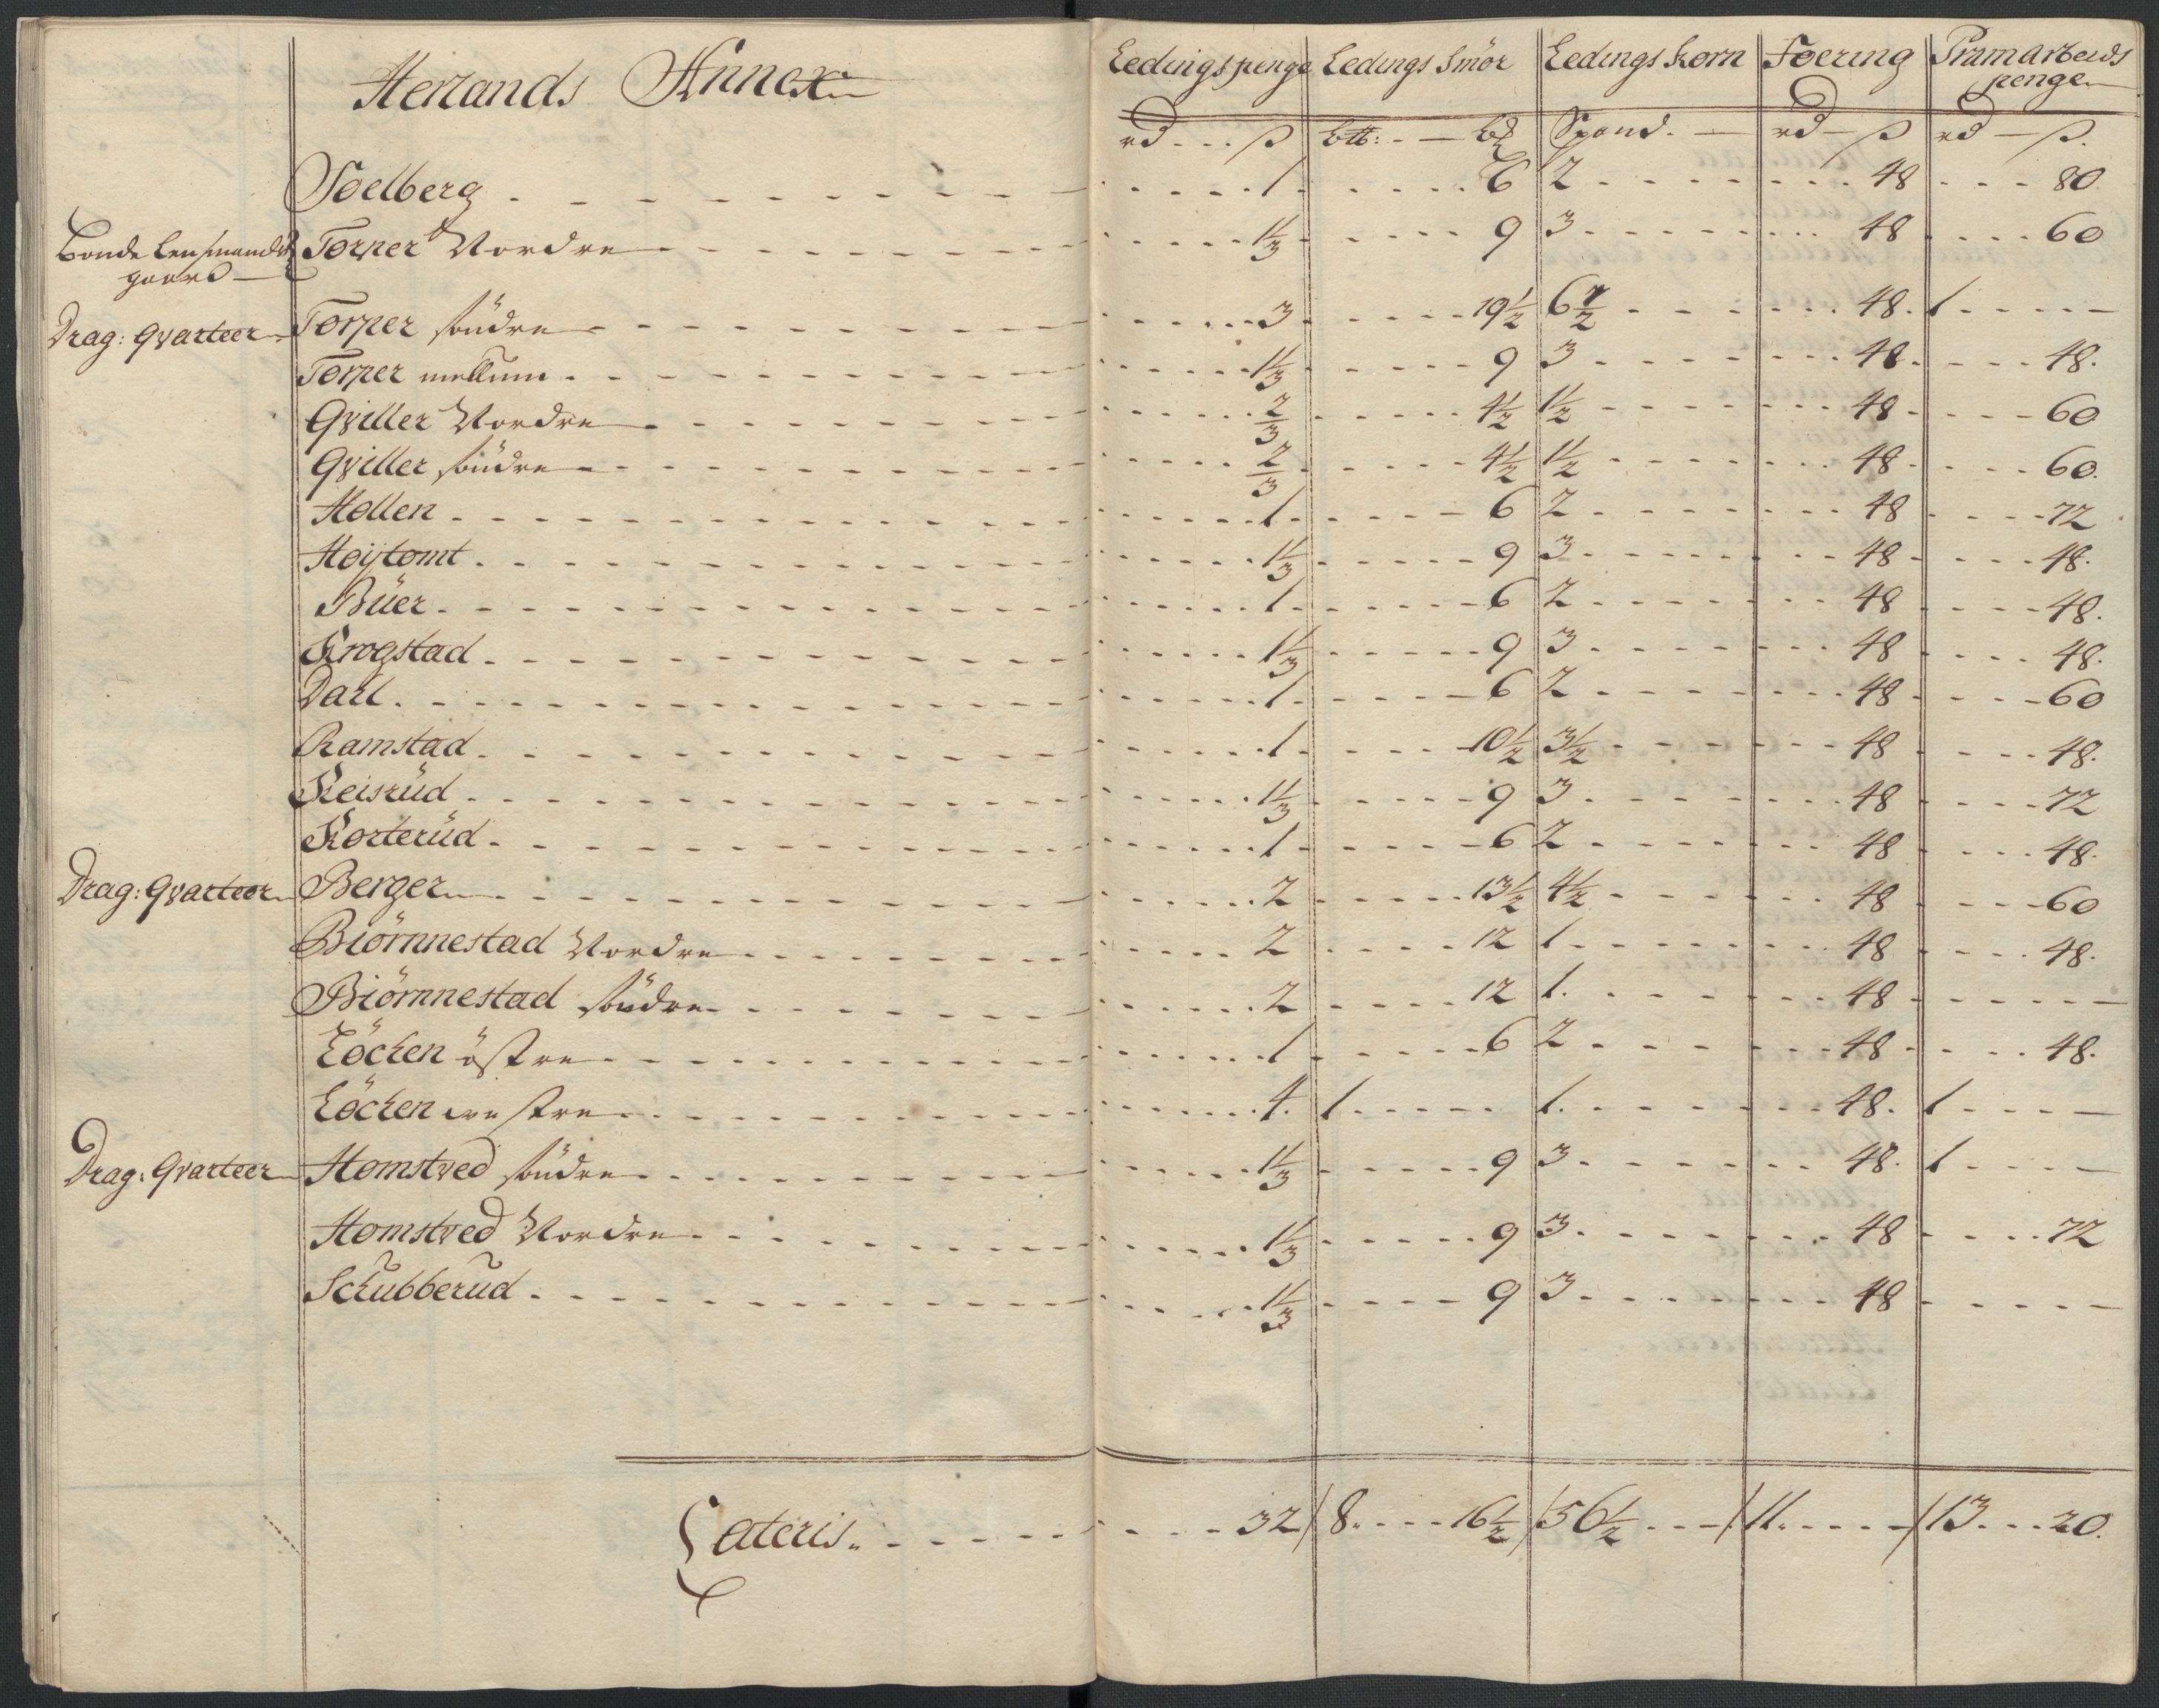 Herlands Annex
Ledingspenge Ledings Smör Ledings Korn Foering Pramarbeids
penge
rd - ß btt: - Spand. rd - ß rd - ß.
Soelberg - 1 - 6 2 - 48 - 80
Bonde Lensmands Torper Nordre - 1⅓ - 9 3 - 48 - 60
gaard
Drag: Qvarteer Torper Söndre - 3 - 19½ 6½ - 48. 1 -
Torper mellum - 1⅓ - 9 3 - 48 - 48.
Qviller Nordre - ⅔ - 4½ 1½ - 48 - 60
Qviller Söndre - ⅔ - 4½ 1½ - 48 - 60.
Hollen - 1 - 6 2 - 48 - 72
Hoijtomt - 1⅓ - 9 3 - 48 - 48.
Büer - 1 - 6 2 - 48 - 48.
Krogstad - 1⅓ - 9 3 - 48 - 48.
Dael - 1 - 6 2 - 48 - 60
Ramstad - 1 - 10½ 3½ - 48 - 48.
Keisrüd - 1⅓ - 9 3 - 48 - 72
Korterüd - 1 - 6 2 - 48 - 48.
Drag: Qvarteer Berger - 2 - 13½ 4½ - 48 - 60
Biörnnestad Nordre - 2 - 12 1 - 48 - 48.
Biörnnestad Söndre - 2 - 12 1. - 48 -
Löcken östre - 1 - 6 2 - 48 - 48.
Löcken westre - 4. 1 - 1. - 48. 1 -
Drag: Qvarteer Homstved Söndre - 1⅓ - 9 3 - 48. 1 -
Homstved Nordre - 1⅓ - 9 3 - 48 - 72
Schubberud - 1⅓ - 9 3 - 48 -
Lateris. - 32 / 8. - 16½ / 56½ - / 11. - / 13 - 20.